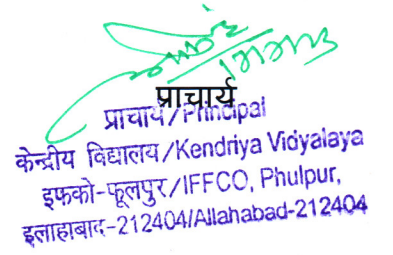 प्राचार्य
प्राचार्य/Principal
केन्द्रीय विद्यालय/Kendriya Vidyalaya
इफको-फूलपुर/IFFCO, Phulpur,
इलाहाबाद-212404/Allahabad-212404